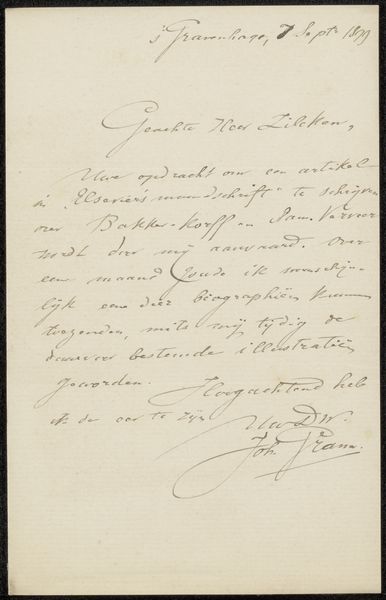 's Gravenhage, 7 Sept. 1899
Geachte Heer Zilcken,
Uwe opdracht om een artikel
in "Elsevier's maandschrift" te schrijven
over Bakker-Korff en Sam. Verveer
wordt door mij aanvaard. Over
een maand zoude ik waarschijn-
lijk een dier biographiën kunnen
toezenden, mits mij tijdig de
daarvoor bestemde illustratiën
geworden. Hoogachtend heb
ik de eer te zijn
Uw D.W.
Joh. Gram.